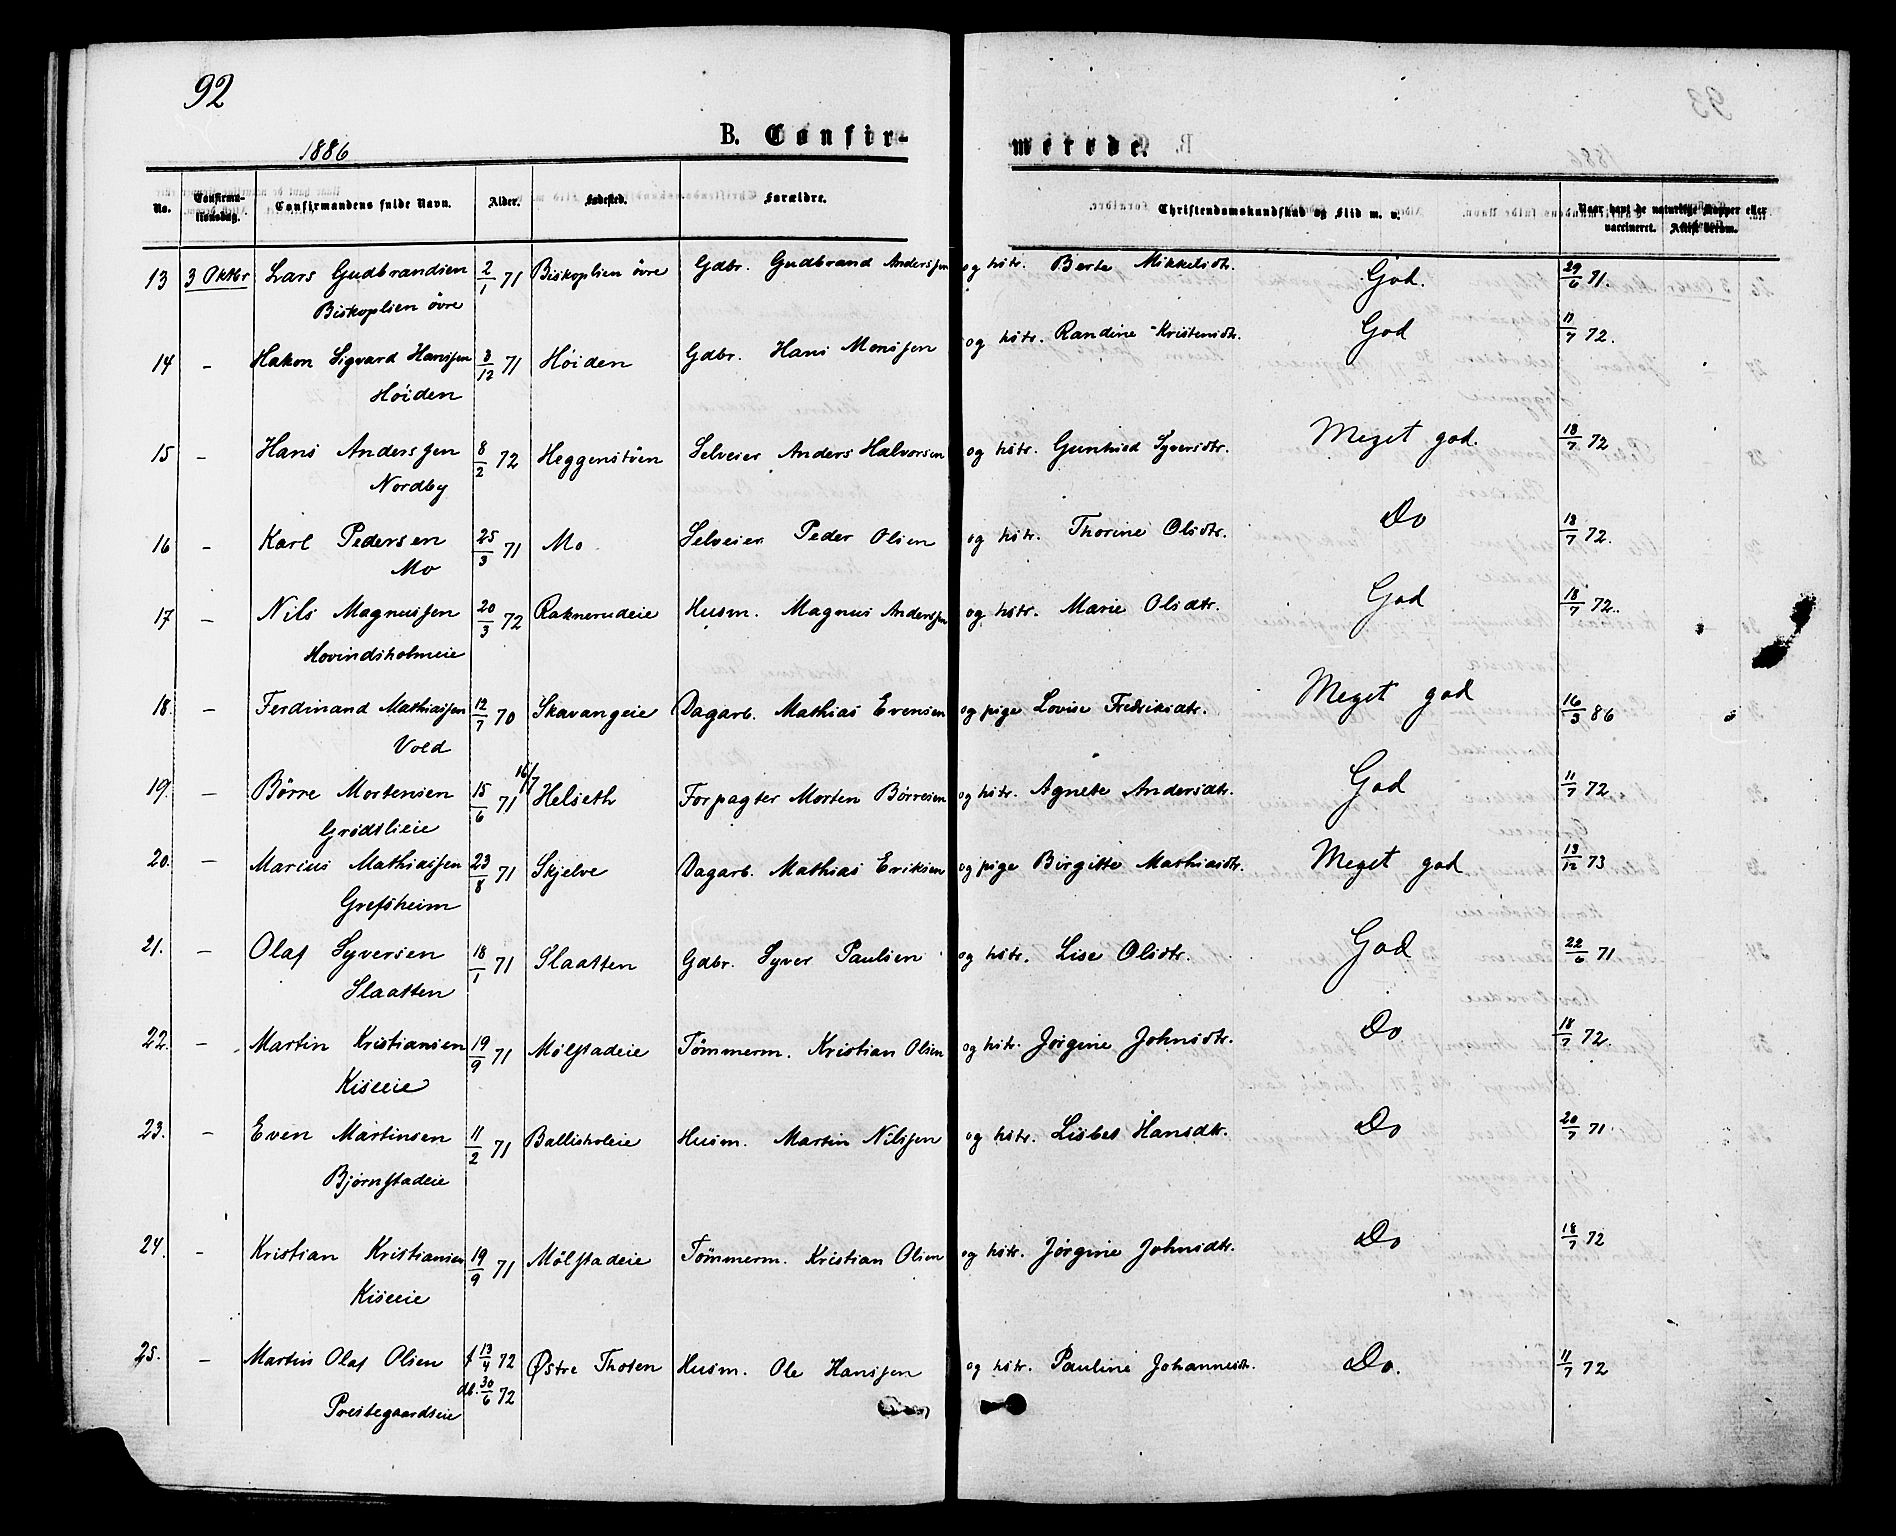 92
1886
B. Confirmerede.
No. Confirmationsdag. Confirmandens fulde Navn. Alder. Fødested. Forældre. Christendomskundskab og Flid m. v. Naar havt de naturlige Kopper eller vaccineret. Attest derom.
13 3 Oktbr Lars Gudbrandsen 2/1 71 Biskoplien övre Gdbr. Gudbrand Anderssen og hstr. Berte Mikkelsdtr. God. 29/6 71.
Biskoplien övre
14 - Hakon Sigvard Hanssen 3/12 71 Höiden Gdbr. Hans Monssen og hstr. Randine Kristensdtr. God 11/7 72.
Höiden
15 - Hans Anderssen 8/2 72 Heggenstöen Selveier Anders Halvorsen og hstr. Gunhild Syversdtr. Meget god. 18/7 72
Nordby
16 - Karl Pedersen 25/3 71 Mo Selveier Peder Olsen og hstr. Thorine Olsdtr. Do 18/7 72.
Mo
17 - Nils Magnussen 20/3 72 Raknerudeie Husm. Magnus Anderssen og hstr. Marie Olsdtr. God 18/7 72.
Hovindsholmeie
18. - Ferdinand Mathiassen 12/7 70 Skavangeie Dagarb. Mathias Evensen og pige Lovise Fredriksdtr. Meget god 16/3 86
Vold
19. - Börre Mortensen 15/6 71 16/7 Helseth Forpagter Morten Börresen og hstr. Agnete Andersdtr. God 11/7 72.
Grödslieie
20. - Marius Mathiassen 23/8 71 Skjelve Dagarb. Mathias Eriksen og pige Birgitte Mathiasdtr. Meget god 13/12 73
Grefsheim
21. - Olaf Syversen 18/1 71 Slaatten Gdbr. Syver Paulsen og hstr. Lise Olsdtr. God 22/6 71
Slaatten
22. - Martin Kristiansen 19/9 71 Mölstadeie Tömmerm. Kristian Olsen og hstr. Jörgine Johnsdtr. Do 18/7 72.
Kiseeie
23. - Even Martinsen 11/2 71 Ballisholeie Husm. Martin Nilssen og hstr. Lisbet Hansdtr. Do 20/7 71.
Björnstadeie
24. - Kristian Kristiansen 19/9 71 Mölstadeie Tömmerm. Kristian Olsen og hstr. Jörgine Johnsdtr. Do 18/7 72
Kiseeie
25. - Martin Olaf Olsen f 13/4 72 Østre Thoten Husm. Ole Hanssen og hstr. Pauline Johannesdtr. Do. 11/7 72
db. 30/6 72
Prestegaardseie